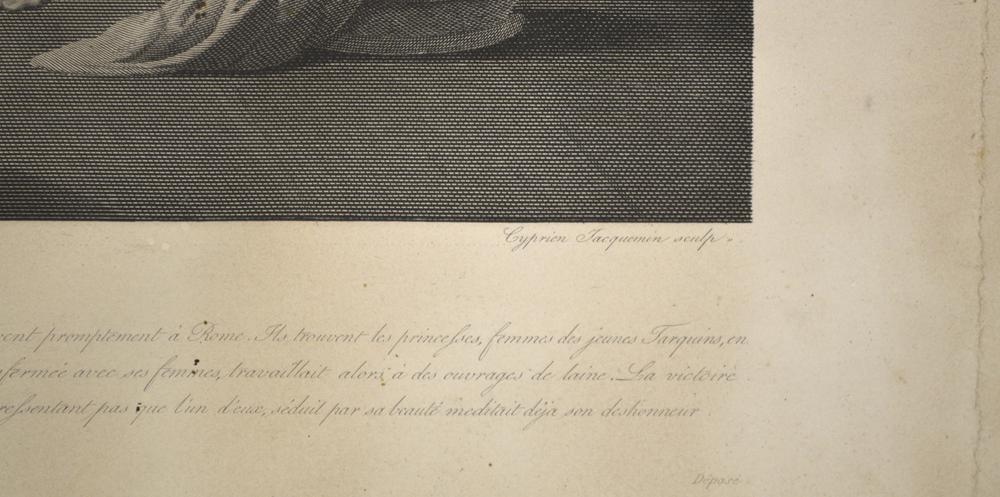 Cyprien Jacquemin sculp.
vent promptement à Rome. Ils trouvent les princesses, femmes des jeunes Tarquins, en
fermée avec ses femmes, travaillait alors à des ouvrages de laine. La victoire
ressentant pas que l'un d'eux, séduit par sa beauté meditait déja son deshonneur.
Déposé